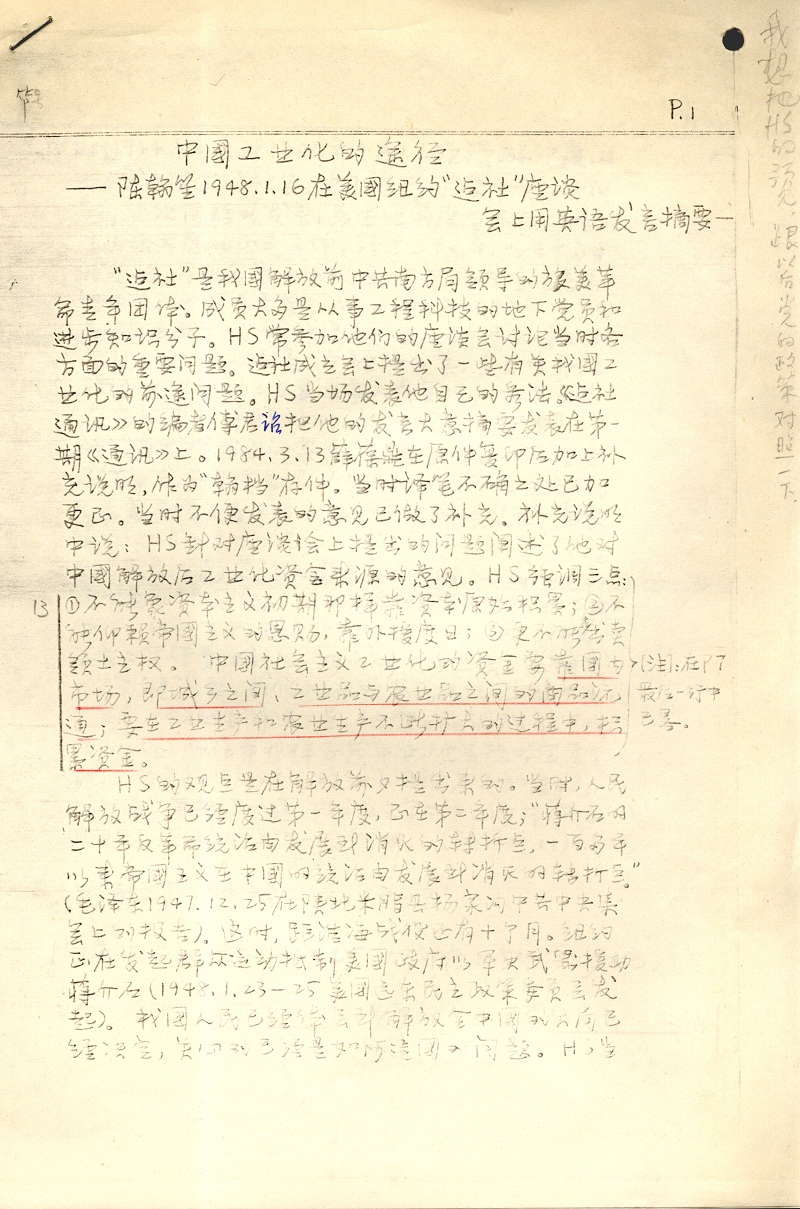 P.1
中國工业化的途径
——陈翰笙1948.1.16在美國纽约"建社"座谈
会上用英语发言摘要—
"建社"是我國解放前中共南方局领导的旅美革
命青年团体。成员大多是从事工程科技的地下党员和
进步知识分子。HS常参加他们的座谈会讨论当时各
方面的重要问题。建社成立会上提出了一些有关我國工
业化的前途问题。HS当场发表他自己的看法。《建社
通讯》的编者傅君诏把他的发言大意摘要发表在第一
期《通讯》上。1984.3.13薛葆鼎在原件复印后加上补
充说明,作为"翰档"存件。当时译笔不确之处已加
更正。当时不便发表的意见已做了补充。补充说明
中说:HS针对座谈会上提出的问题阐述了他对
中國解放后工业化资金来源的意见。HS强调三点:
13
①不能象资本主义初期那样靠资本原始积累;②不
能仰赖帝國主义的恩赐,靠外援度日;③更不能出卖
领土主权。中國社会主义工业化的资金要靠國内
市场,即城乡之间、工业品与农业品之间的商品流
通;要在工业生产和农业生产不断扩大的过程中,积
累资金。
(注:在P7
最后一行中
已写。
HS的观点是在解放前夕提出来的。当时,人民
解放战争已经度过第一年度,正在第二年度;"蒋介石的
二十年反革命统治由发展到消灭的转折点,一百多年
以来帝國主义在中國的统治由发展到消灭的转折点。"
(毛泽东1947.12.25在陕北米脂县杨家沟中共中央集
会上的报告)。这时,距淮海战役还有十个月。纽约
正在发起群众运动抵制美國政府以军火武器援助
蒋介石(1948.1.23—25美國远东民主政策委员会发
起)。我國人民已经体会到解放全中國的大局已
经决定,关心的已经是如何建國的问题。HS当
我想把HS的预见,跟以后党的政策对照一下